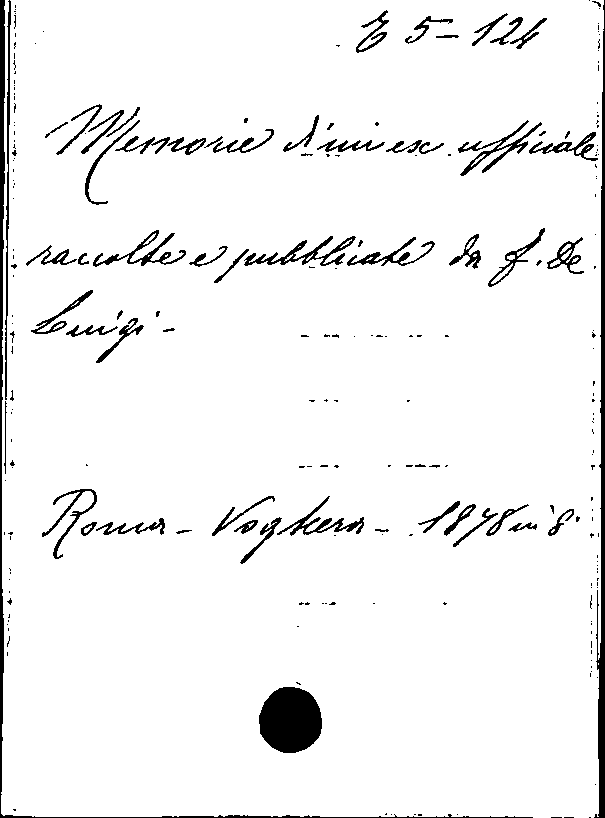 E 5 - 124
Memorie d'un ex ufficiale
raccolte e pubblicate da f. De
Luigi -
Roma - Voghera - 1878 in 8°